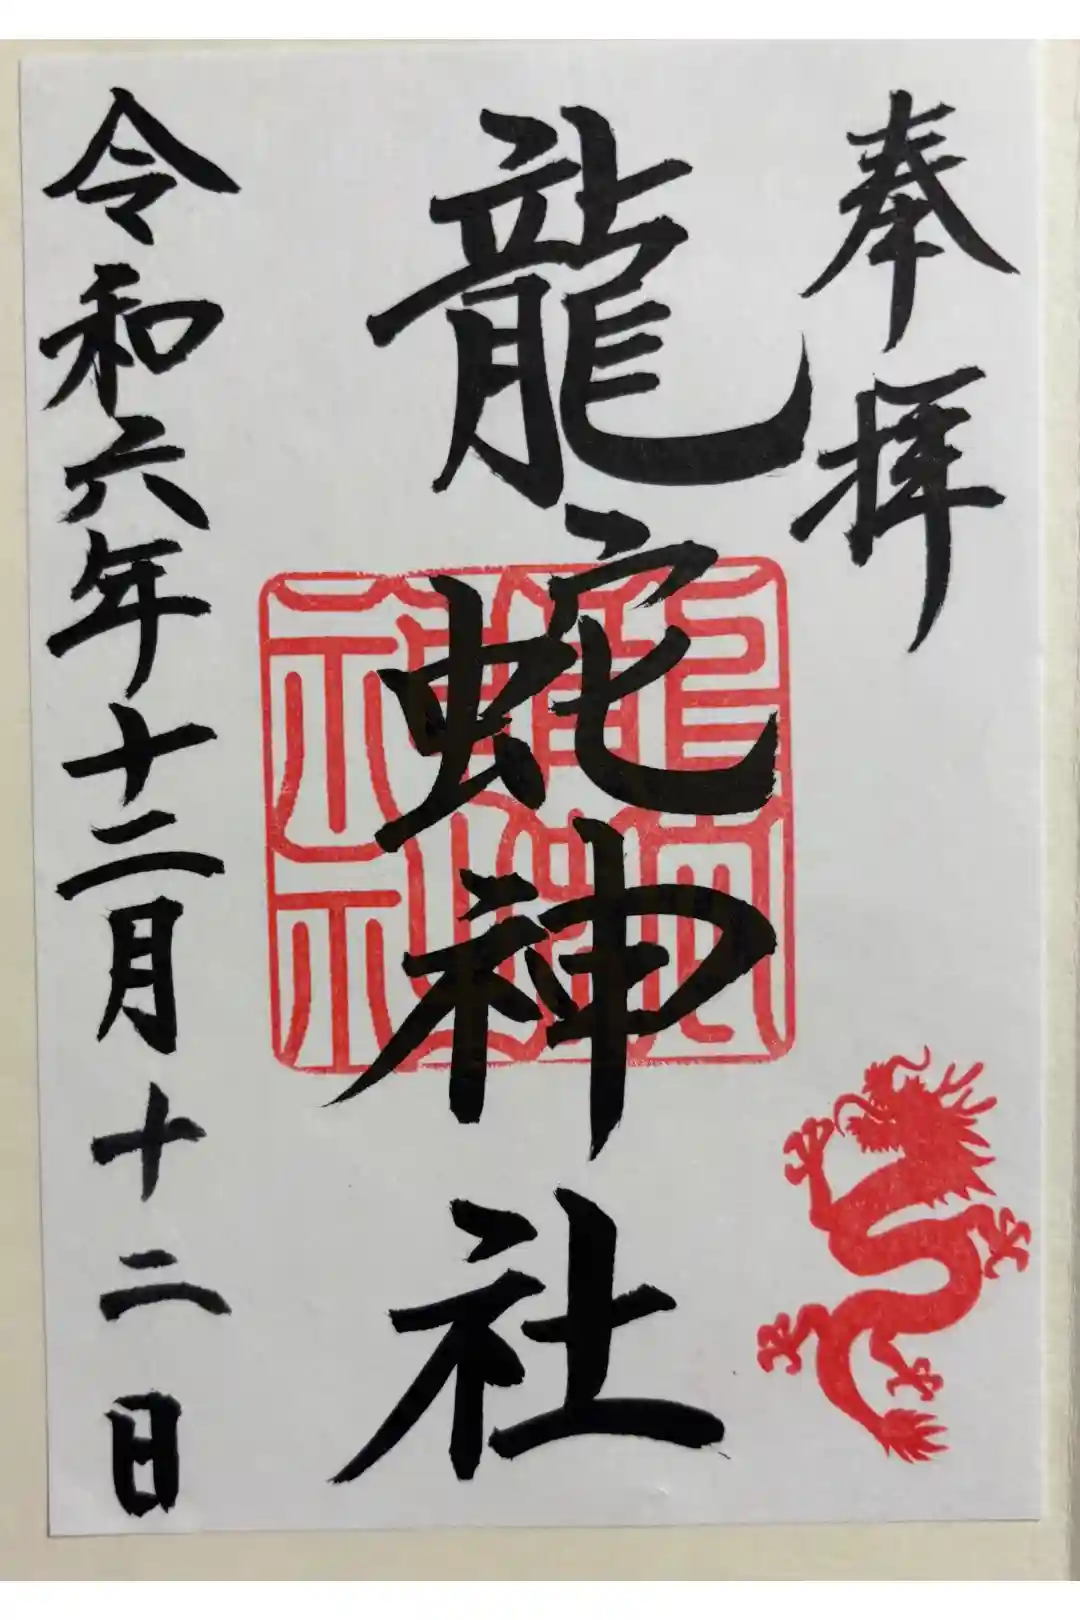 奉拝
龍蛇神社
令和六年十二月十二日